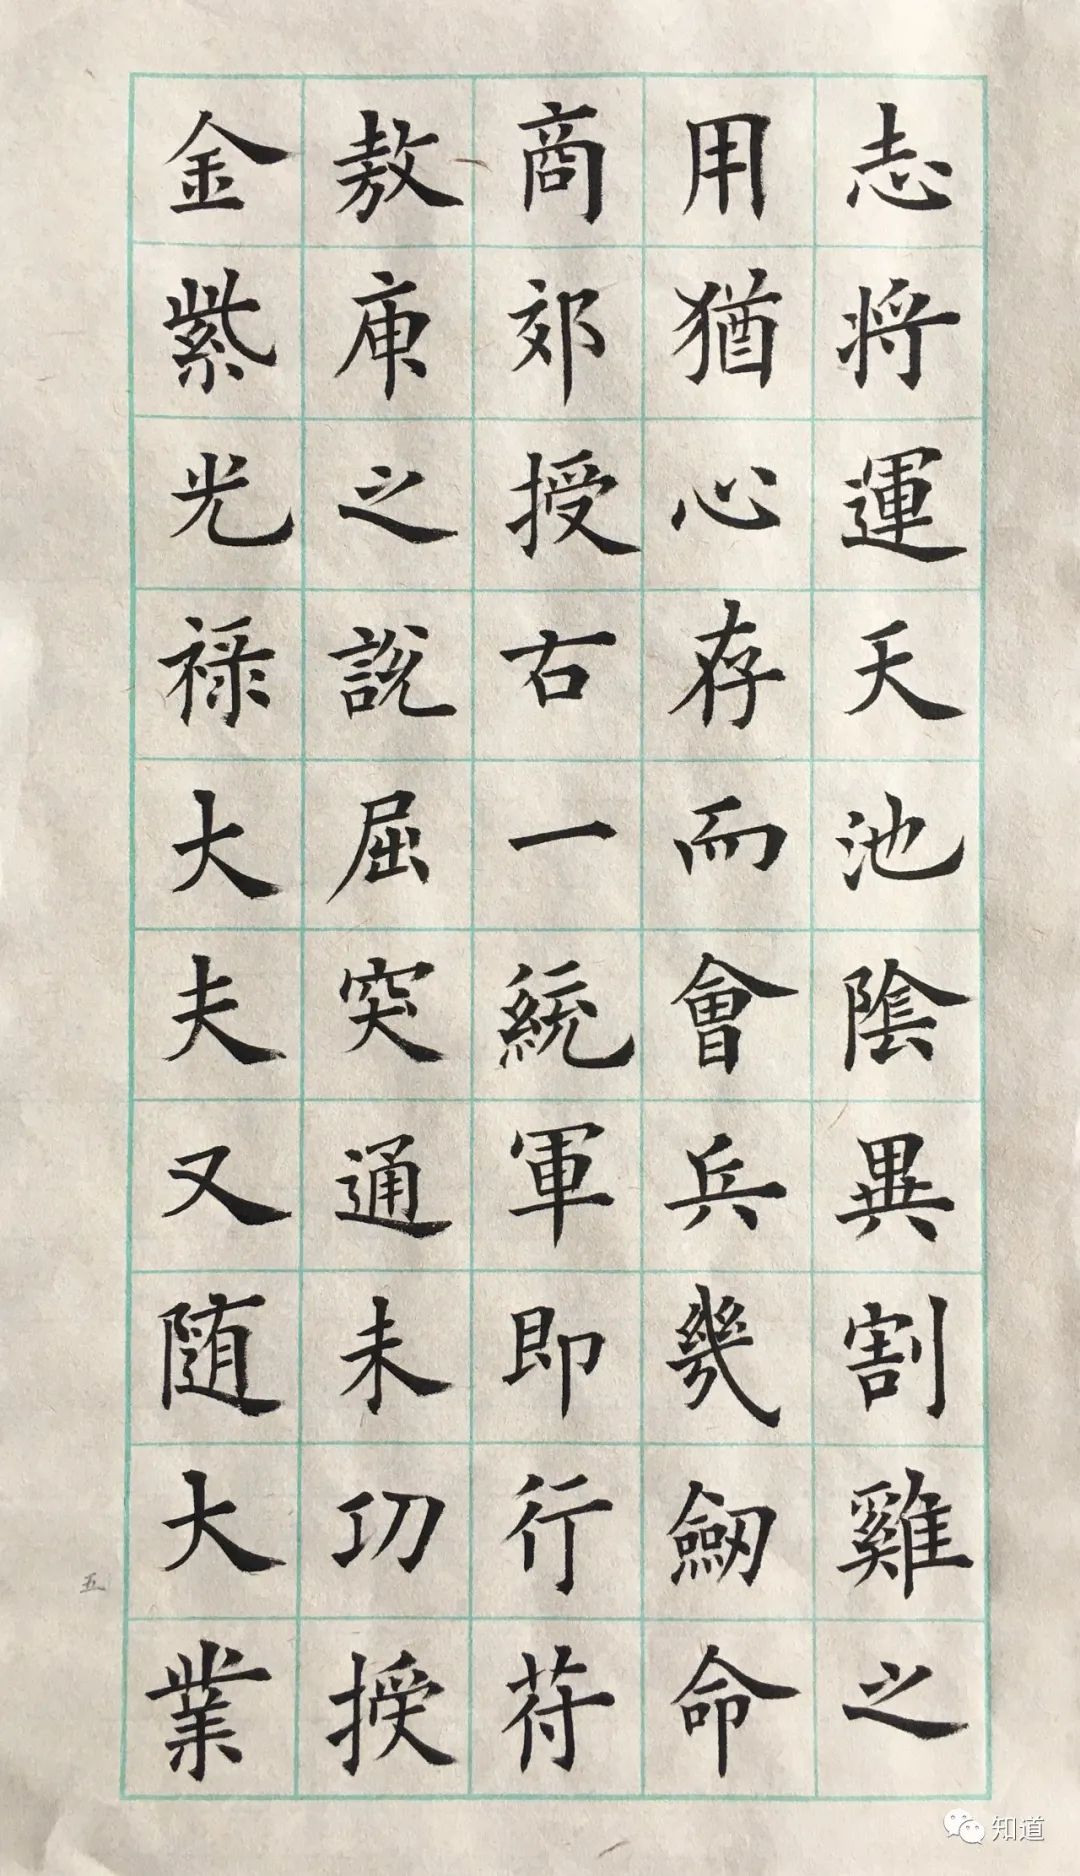 志将運天池陰異割雞之
用猶心存而會兵幾劒命
商郊授右一統軍即行苻
敖庾之說屈突通未㓛援
金紫光禄大夫又随大業
五
知道